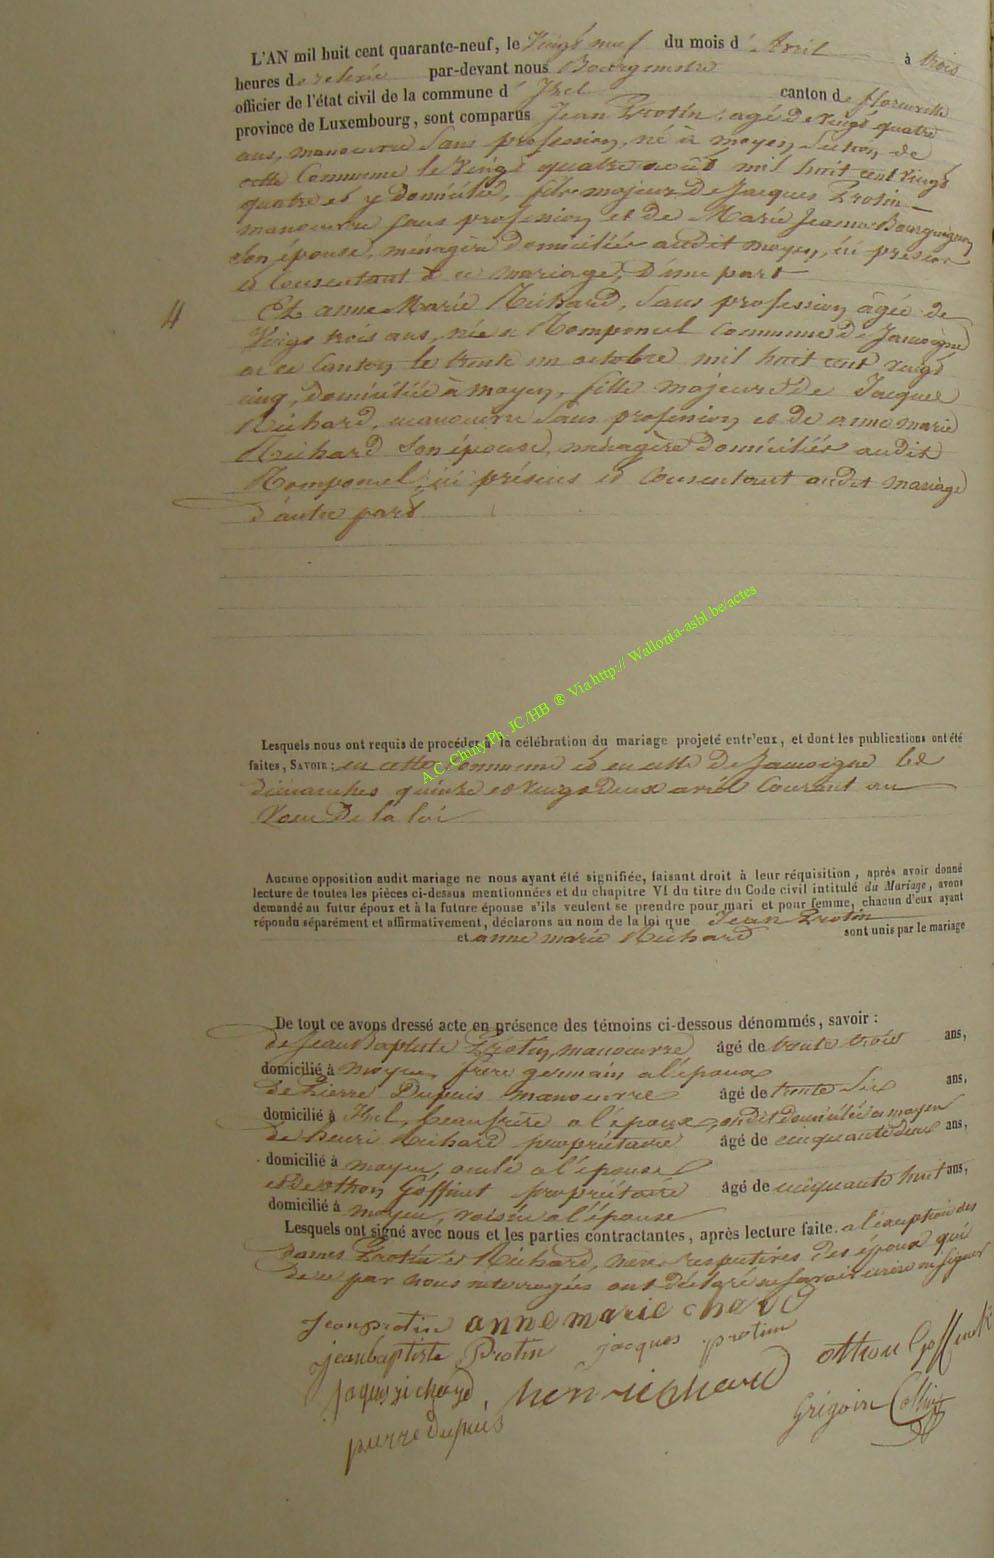 L'AN mil huit cent quarante-neuf, le Vingt neuf du mois d' Avril à trois
heures de relevée par-devant nous Bourgmestre
officier de l'état civil de la commune d' Izel canton de florenville
province de Luxembourg, sont comparus Jean Protin, agé de vingt quatre
ans, manoeuvre sans profession, né à moyen Section de
cette Commune le vingt quatre août mil huit cent vingt
quatre et y domicilié, fils majeur de Jacques Protin
manoeuvre sans profession et de Marie Jeanne Bourguignon
son épouse, ménagère domiciliés audit moyen, ici présens
et Consentant à ce mariage, d'une part
4
Et anne Marie Richard, Sans profession agée de
Vingt trois ans, née à Romponcel Commune de Jamoigne
en ce Canton le trente un octobre mil huit cent vingt
cinq, domiciliée à moyen, fille majeure de Jacques
Richard, manoeuvre Sans profession et de anne marie
Richard son épouse, ménagère domiciliés audit
Romponcel, ici présens et Consentant audit mariage
d'autre part
Lesquels nous ont requis de procéder à la célébration du mariage projeté entr'eux, et dont les publications ont été
faites, SAVOIR: en cette Commune et en celle de Jamoigne les
dimanches quinze et vingt deux avril Courant au
Voeu de la loi
Aucune opposition audit mariage ne nous ayant été signifiée, faisant droit à leur réquisition, après avoir donné
lecture de toutes les pièces ci-dessus mentionnées et du chapitre VI du titre du Code civil intitulé du Mariage, avons
demandé au futur époux et à la future épouse s'ils veulent se prendre pour mari et pour femme, chacun d'eux ayant
répondu séparément et affirmativement, déclarons au nom de la loi que Jean Protin
et anne marie Richard sont unis par le mariage
De tout ce avons dressé acte en présence des témoins ci-dessous dénommés, savoir:
de Jean Baptiste Protin, manoeuvre âgé de trente trois ans,
domicilié à moyen, frère germain à l'époux
de Pierre Dupuis manoeuvre âgé de trente Six ans,
domicilié à Izel, beau frère à l'époux, domicilié à moyen
de henri Richard propriétaire âgé de cinquante deux ans,
domicilié à moyen, oncle à l'épouse
et de othon Goffinet propriétaire âgé de cinquante huit ans,
domicilié à moyen, voisin à l'épouse
Lesquels ont signé avec nous et les parties contractantes, après lecture faite. à l'exception des
dames Protin et Richard, mères respectives des époux qui
de ce par nous interrogées ont déclaré ne savoir écrire ni signer
jean protin anne marie
jean baptiste Protin jacques protin
jaques richard, henri richard othon Goffinet
pierre dupuis Grégoire
A.C. Chiny Ph. JC/HB ® Via http:// Wallonia-asbl.be/actes